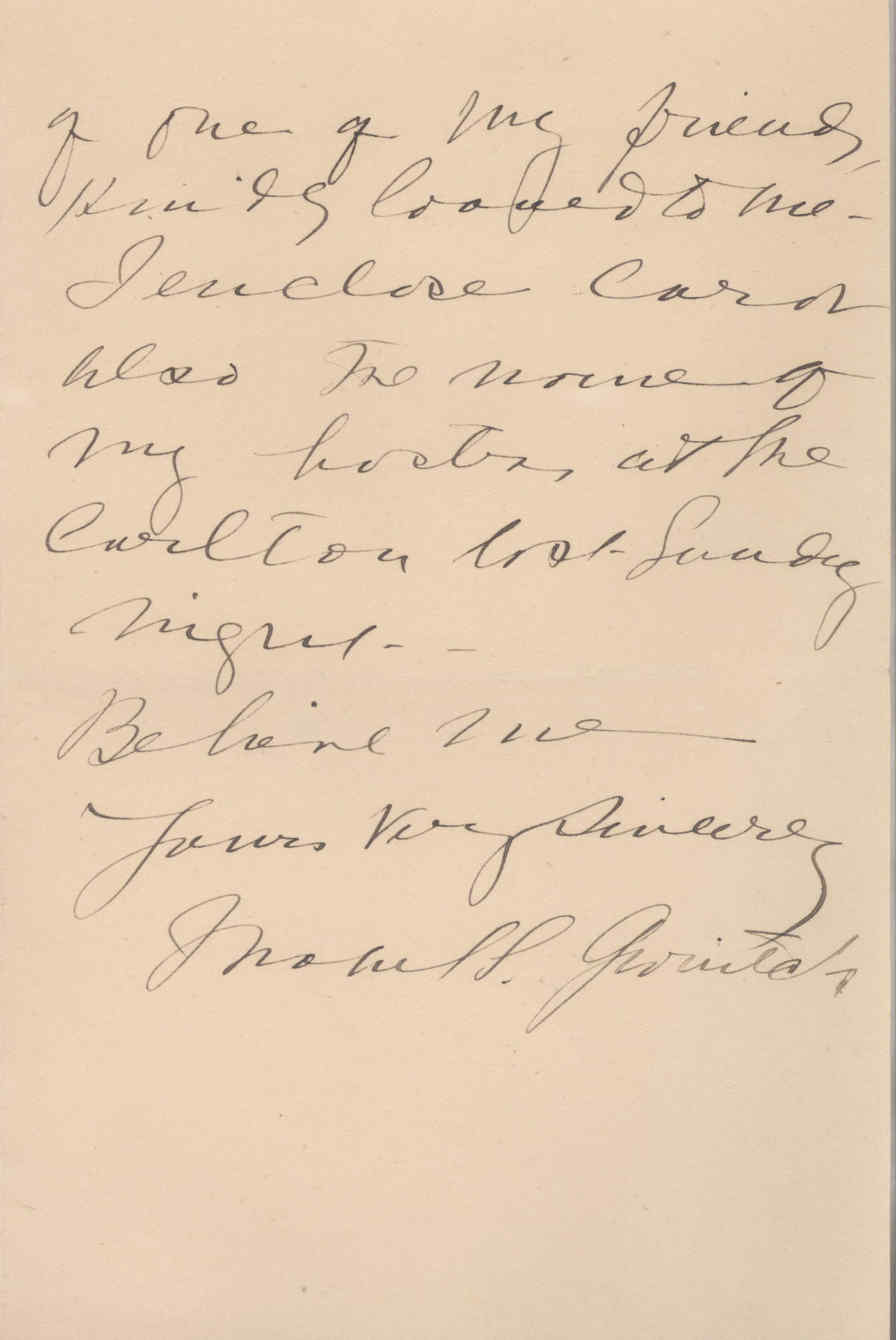 of one of my friends,
Kindly loaned to me -
I enclose Card
also the name of
my hostess, at the
Carlton last Sunday
Night - -
Believe me
Yours Very Sincerely